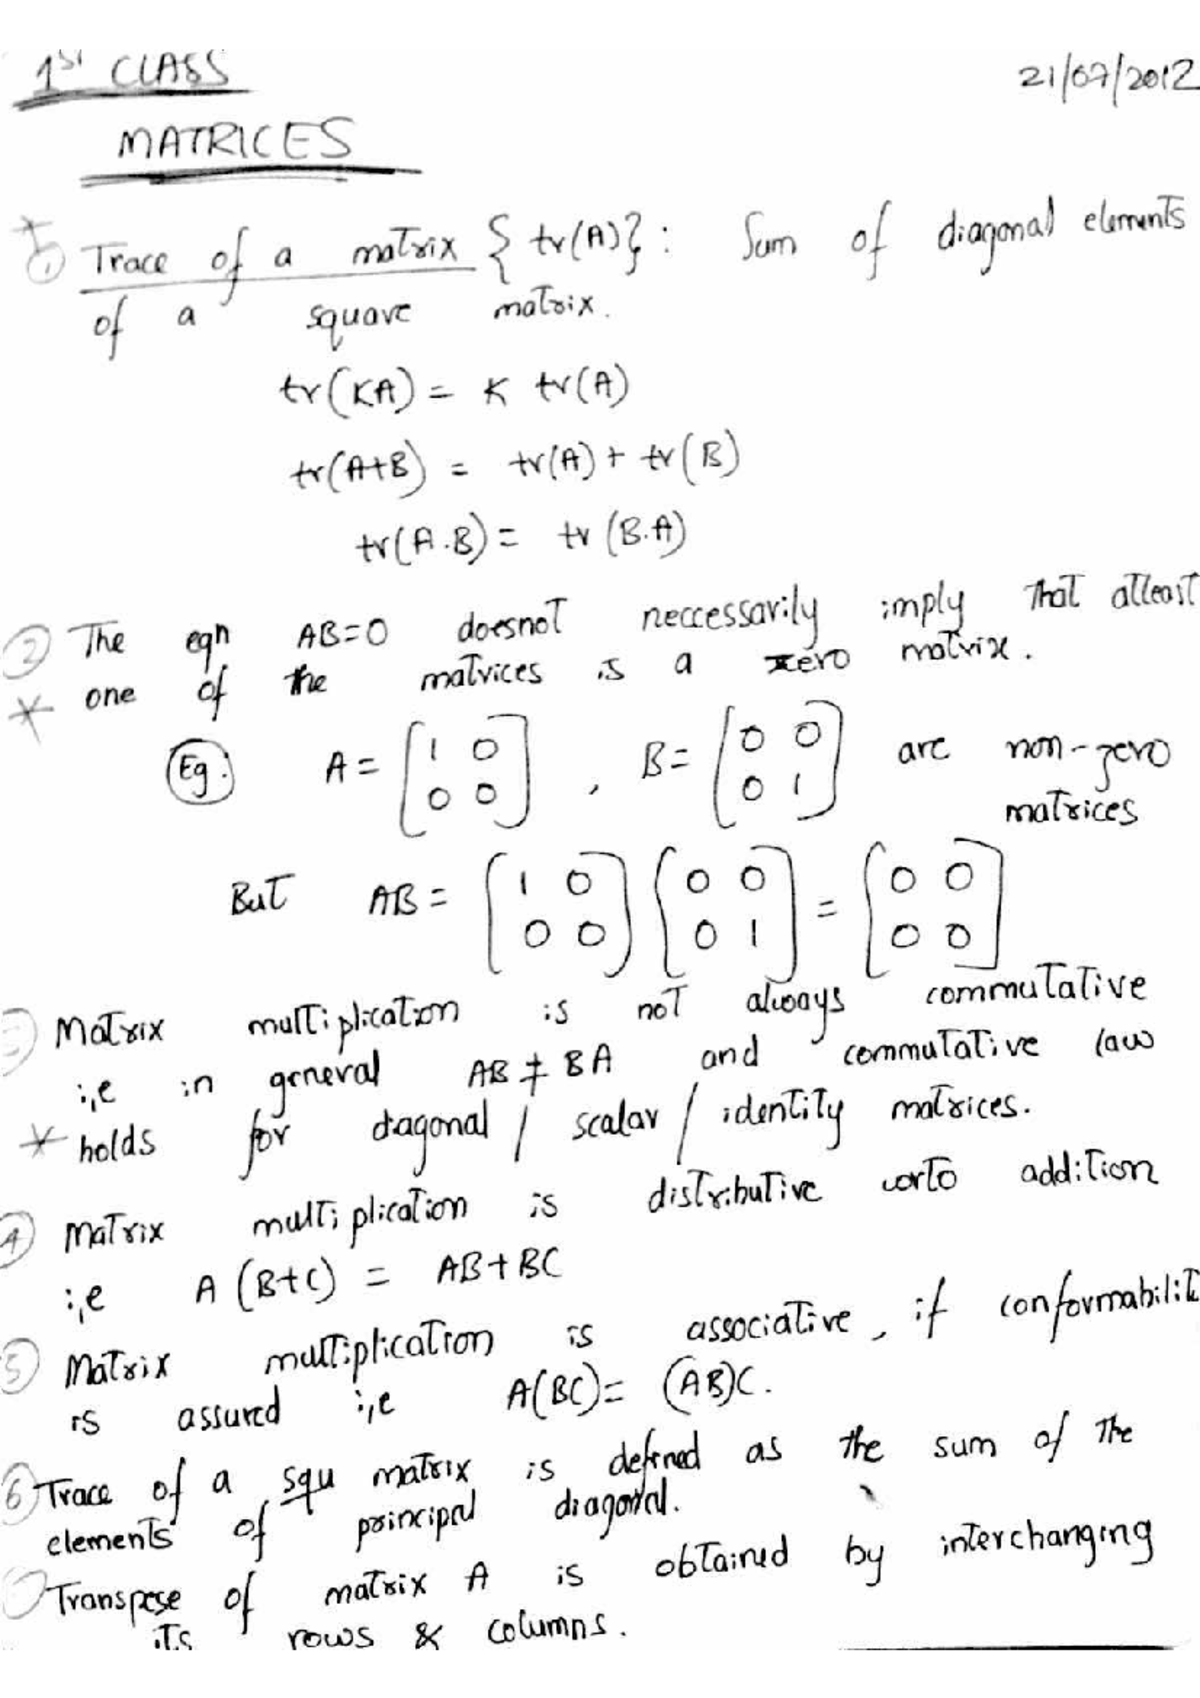 1ST CLASS 21/07/2012
MATRICES
* 1) Trace of a matrix { tr(A)} : Sum of diagonal elements
of a square matrix.
tr(KA) = K tr(A)
tr(A+B) = tr(A) + tr(B)
tr(A.B) = tr(B.A)
2) The eqn AB=0 doesnot neccessarily imply that atleast
* one of the matrices is a zero matrix.
Eg. A = [1 0 , B = [0 0 are non-zero
0 0] 0 1] matrices
But AB = [1 0 [0 0 = [0 0
0 0] 0 1] 0 0]
3) Matrix multiplication is not always commutative
i,e in general AB ≠ BA and commutative law
* holds for diagonal / scalar / identity matrices.
4) Matrix multiplication is distributive wrto addition
i,e A (B+C) = AB+BC
5) Matrix multiplication is associative, if conformabilit
is assured i,e A(BC) = (AB)C.
6) Trace of a squ matrix is defined as the sum of the
elements of principal diagonal.
Transpose of matrix A is obtained by interchanging
its rows & columns.